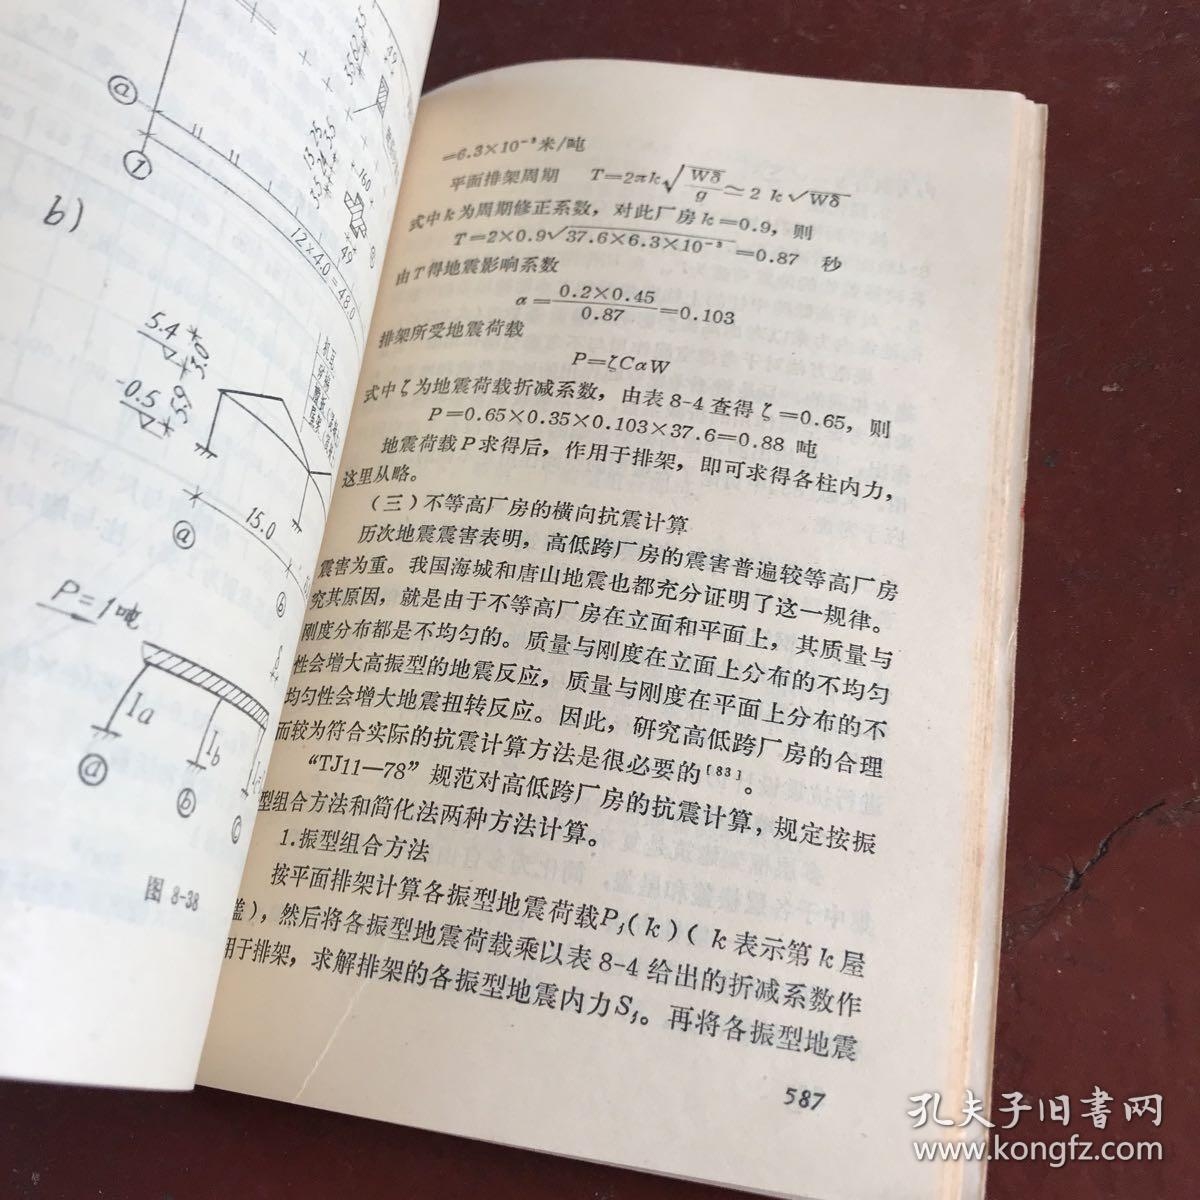 a
1
b)
12×4.0=48.0
160
5.4
3.0
-0.5
5.9
a
15.0
b
P=1吨
Ia
Ib
a
b
c
图 8-38
=6.3×10⁻³米/吨
平面排架周期 T=2πk√(Wδ/g)≃2 k√Wδ
式中k为周期修正系数，对此厂房k=0.9，则
T=2×0.9√37.6×6.3×10⁻³=0.87 秒
由T得地震影响系数
α=0.2×0.45/0.87=0.103
排架所受地震荷载
P=ζCαW
式中ζ为地震荷载折减系数，由表8-4查得ζ=0.65，则
P=0.65×0.35×0.103×37.6=0.88 吨
地震荷载P求得后，作用于排架，即可求得各柱内力，
这里从略。
（三）不等高厂房的横向抗震计算
历次地震震害表明，高低跨厂房的震害普遍较等高厂房
震害为重。我国海城和唐山地震也都充分证明了这一规律。
究其原因，就是由于不等高厂房在立面和平面上，其质量与
刚度分布都是不均匀的。质量与刚度在立面上分布的不均匀
性会增大高振型的地震反应，质量与刚度在平面上分布的不
均匀性会增大地震扭转反应。因此，研究高低跨厂房的合理
而较为符合实际的抗震计算方法是很必要的[83]。
“TJ11—78”规范对高低跨厂房的抗震计算，规定按振
型组合方法和简化法两种方法计算。
1.振型组合方法
按平面排架计算各振型地震荷载Pj(k)(k表示第k屋
盖)，然后将各振型地震荷载乘以表8-4给出的折减系数作
用于排架，求解排架的各振型地震内力Sj。再将各振型地震
587
孔夫子旧书网
www.kongfz.com